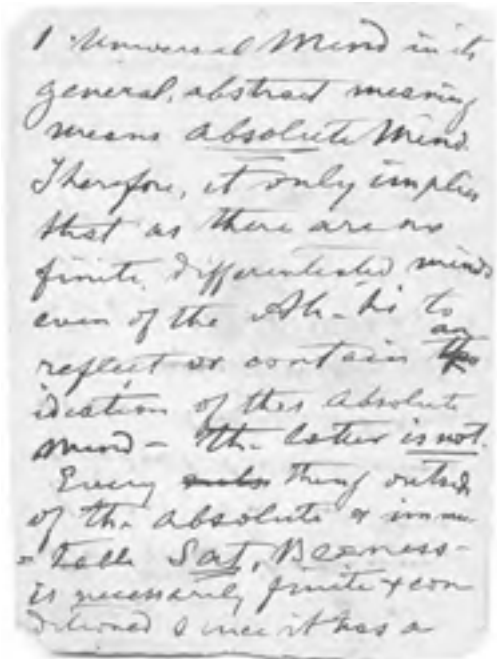 1 Universal Mind in its
general, abstract meaning
means absolute Mind.
Therefore, it only implies
that as there are no
finite, differentiated minds
even of the Ah-hi to
an
reflect or contain the
ideation of this absolute
mind – the latter is not.
Every thing outside
of the absolute & immu
= table Sat, Beeness –
is necessarily finite & con
ditioned since it has a